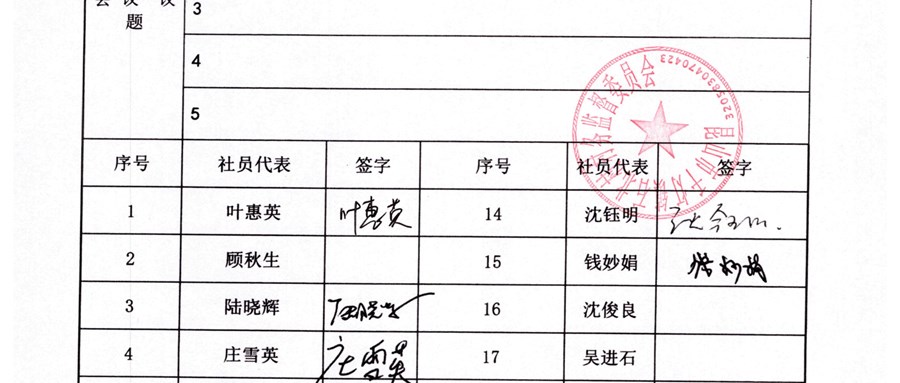 题
3
4
5
昆山市千灯镇石北村村务监督委员会
3205830470423
序号 社员代表 签字 序号 社员代表 签字
1 叶惠英 叶惠英 14 沈钰明
2 顾秋生 15 钱妙娟 钱妙娟
3 陆晓辉 16 沈俊良
4 庄雪英 庄雪英 17 吴进石